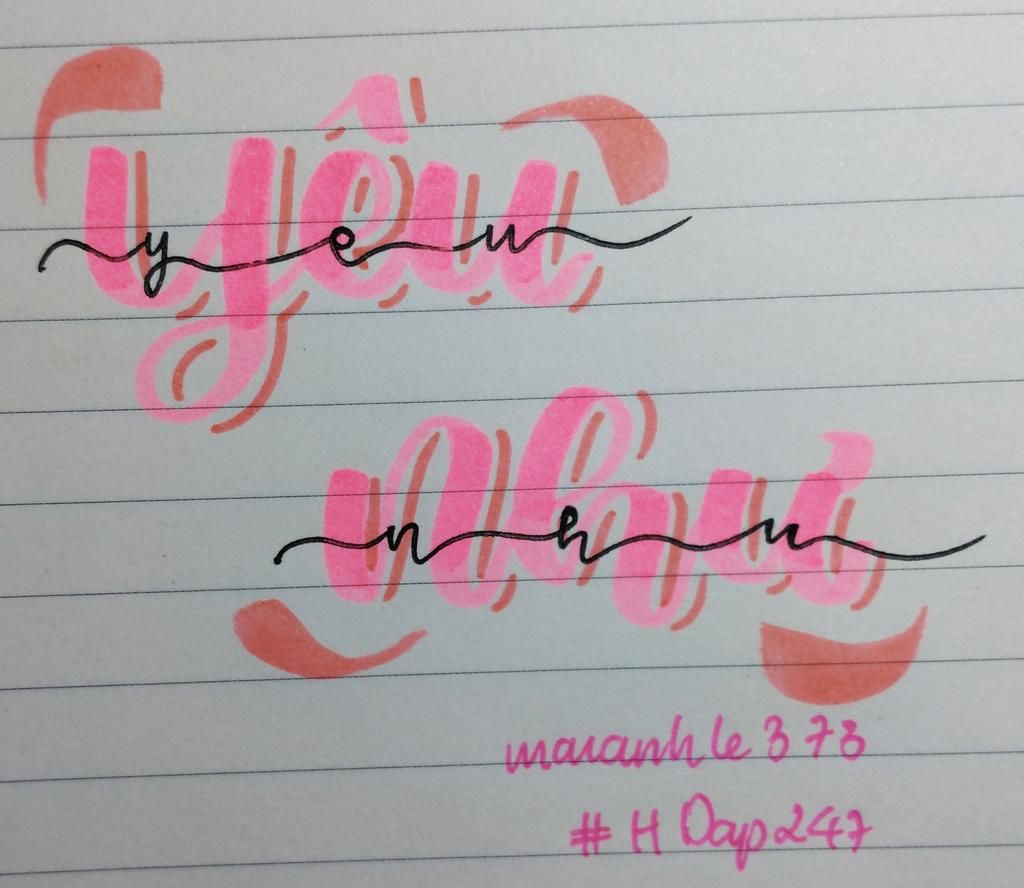 yêu
yeu
như
nhu
maianhle373
#HDayp247